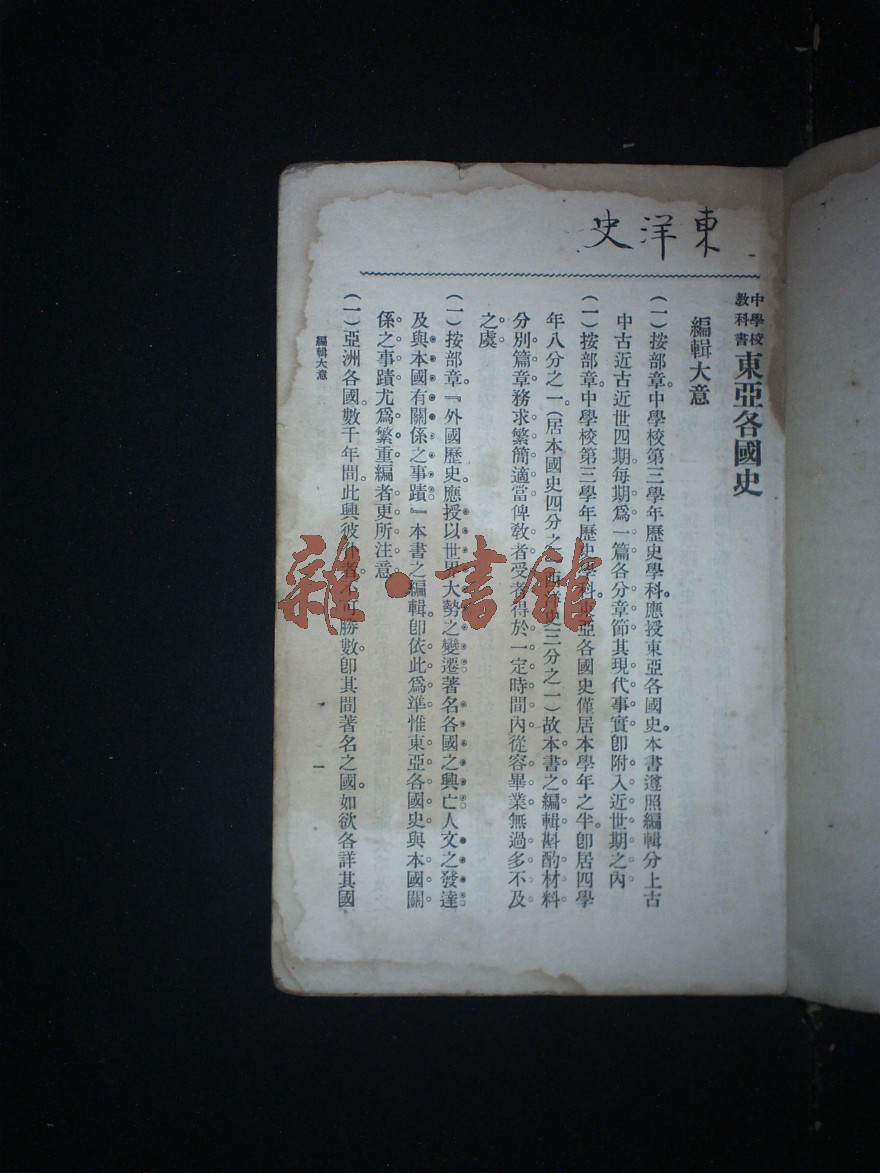 東洋史
中學校
教科書
東亞各國史
編輯大意
(一)按部章。中學校第三學年歷史學科。應授東亞各國史。本書遵照編輯分上古
中古近古近世四期每期爲一篇各分章節其現代事實卽附入近世期之內
(一)按部章。中學校第三學年歷史學科。東亞各國史僅居本學年之半。卽居四學
年八分之一。(居本國史四分之一西洋史三分之一)故本書之編輯斟酌材料
分別篇章務求繁簡適當俾敎者受者得於一定時間內從容畢業無過多不及
之虞。
(一)按部章『外國歷史。應授以世界大勢之變遷著名各國之興亡人文之發達
及與本國有關係之事蹟』本書之編輯卽依此爲準惟東亞各國史與本國關
係之事蹟尤爲繁重編者更所注意
(一)亞洲各國。數千年間。此興彼仆者不可勝數。卽其間著名之國。如欲各詳其國
編輯大意
一
雜·書館